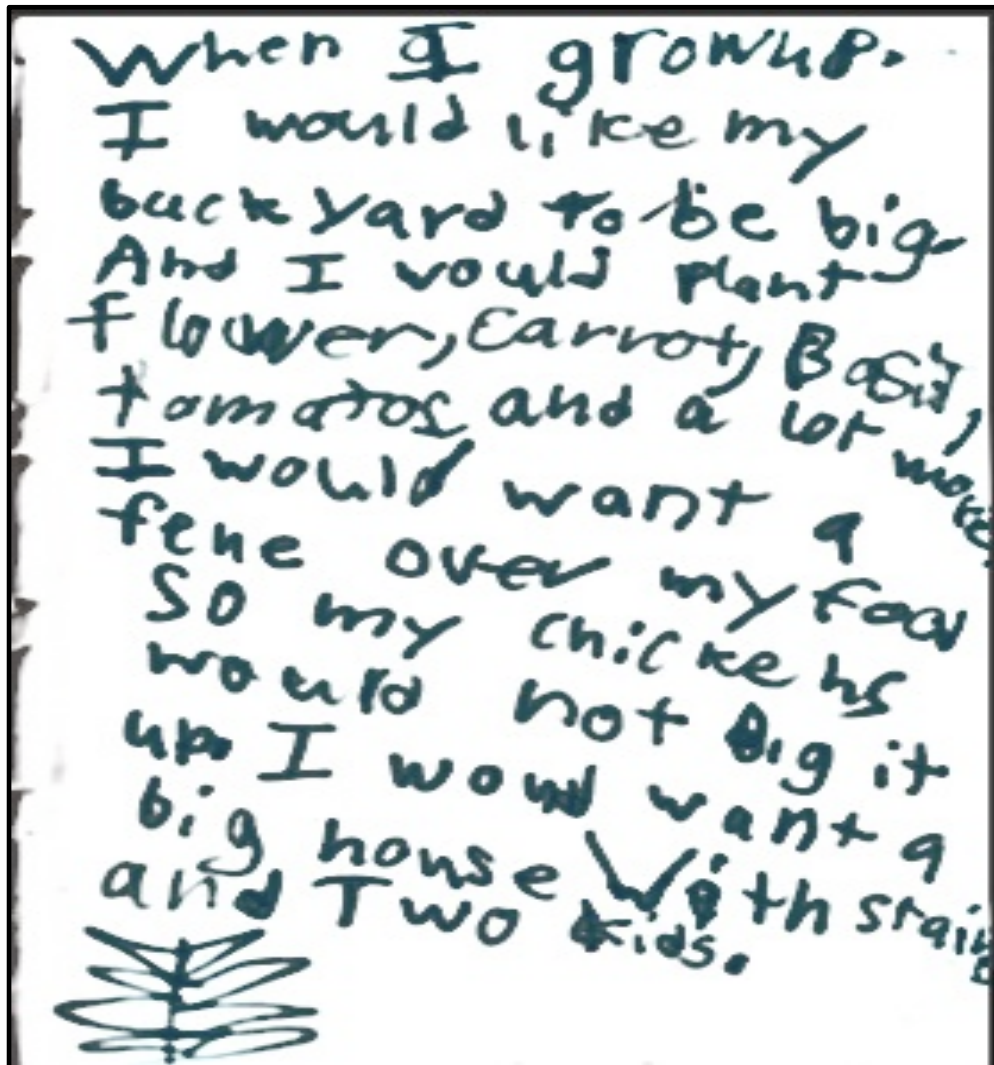 When I grow up.
I would like my
back yard to be big.
And I would plant
flower, carrot, Basil,
tomatos and a lot more.
I would want a
fene over my food
So my chickens
would not Dig it
up. I would want a
big house With stairs
and Two kids.